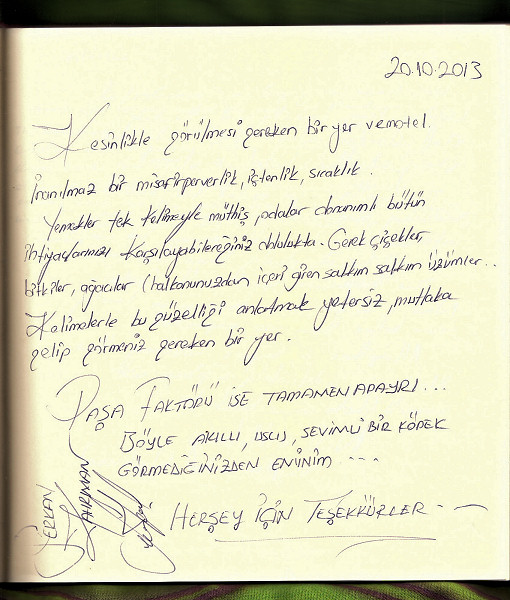 20.10.2013
Kesinlikle görülmesi gereken bir yer ve motel.
İnanılmaz bir misafirperverlik, içtenlik, sıcaklık.
Yemekler tek kelimeyle müthiş, odalar donanımlı bütün
ihtiyaçlarınızı karşılayabileceğiniz dolulukta. Gerek çiçekler,
bitkiler, ağaçlar (balkonunuzdan içeri giren salkım salkım üzümler..
Kelimelerle bu güzelliği anlatmak yetersiz, mutlaka
gelip görmeniz gereken bir yer.
PAŞA FAKTÖRÜ İSE TAMAMEN APAYRI...
BÖYLE AKILLI, USLU, SEVİMLİ BİR KÖPEK
GÖRMEDİĞİNİZDEN EMİNİM ...
HERŞEY İÇİN TEŞEKKÜRLER ..
SERKAN
KAHRIMAN